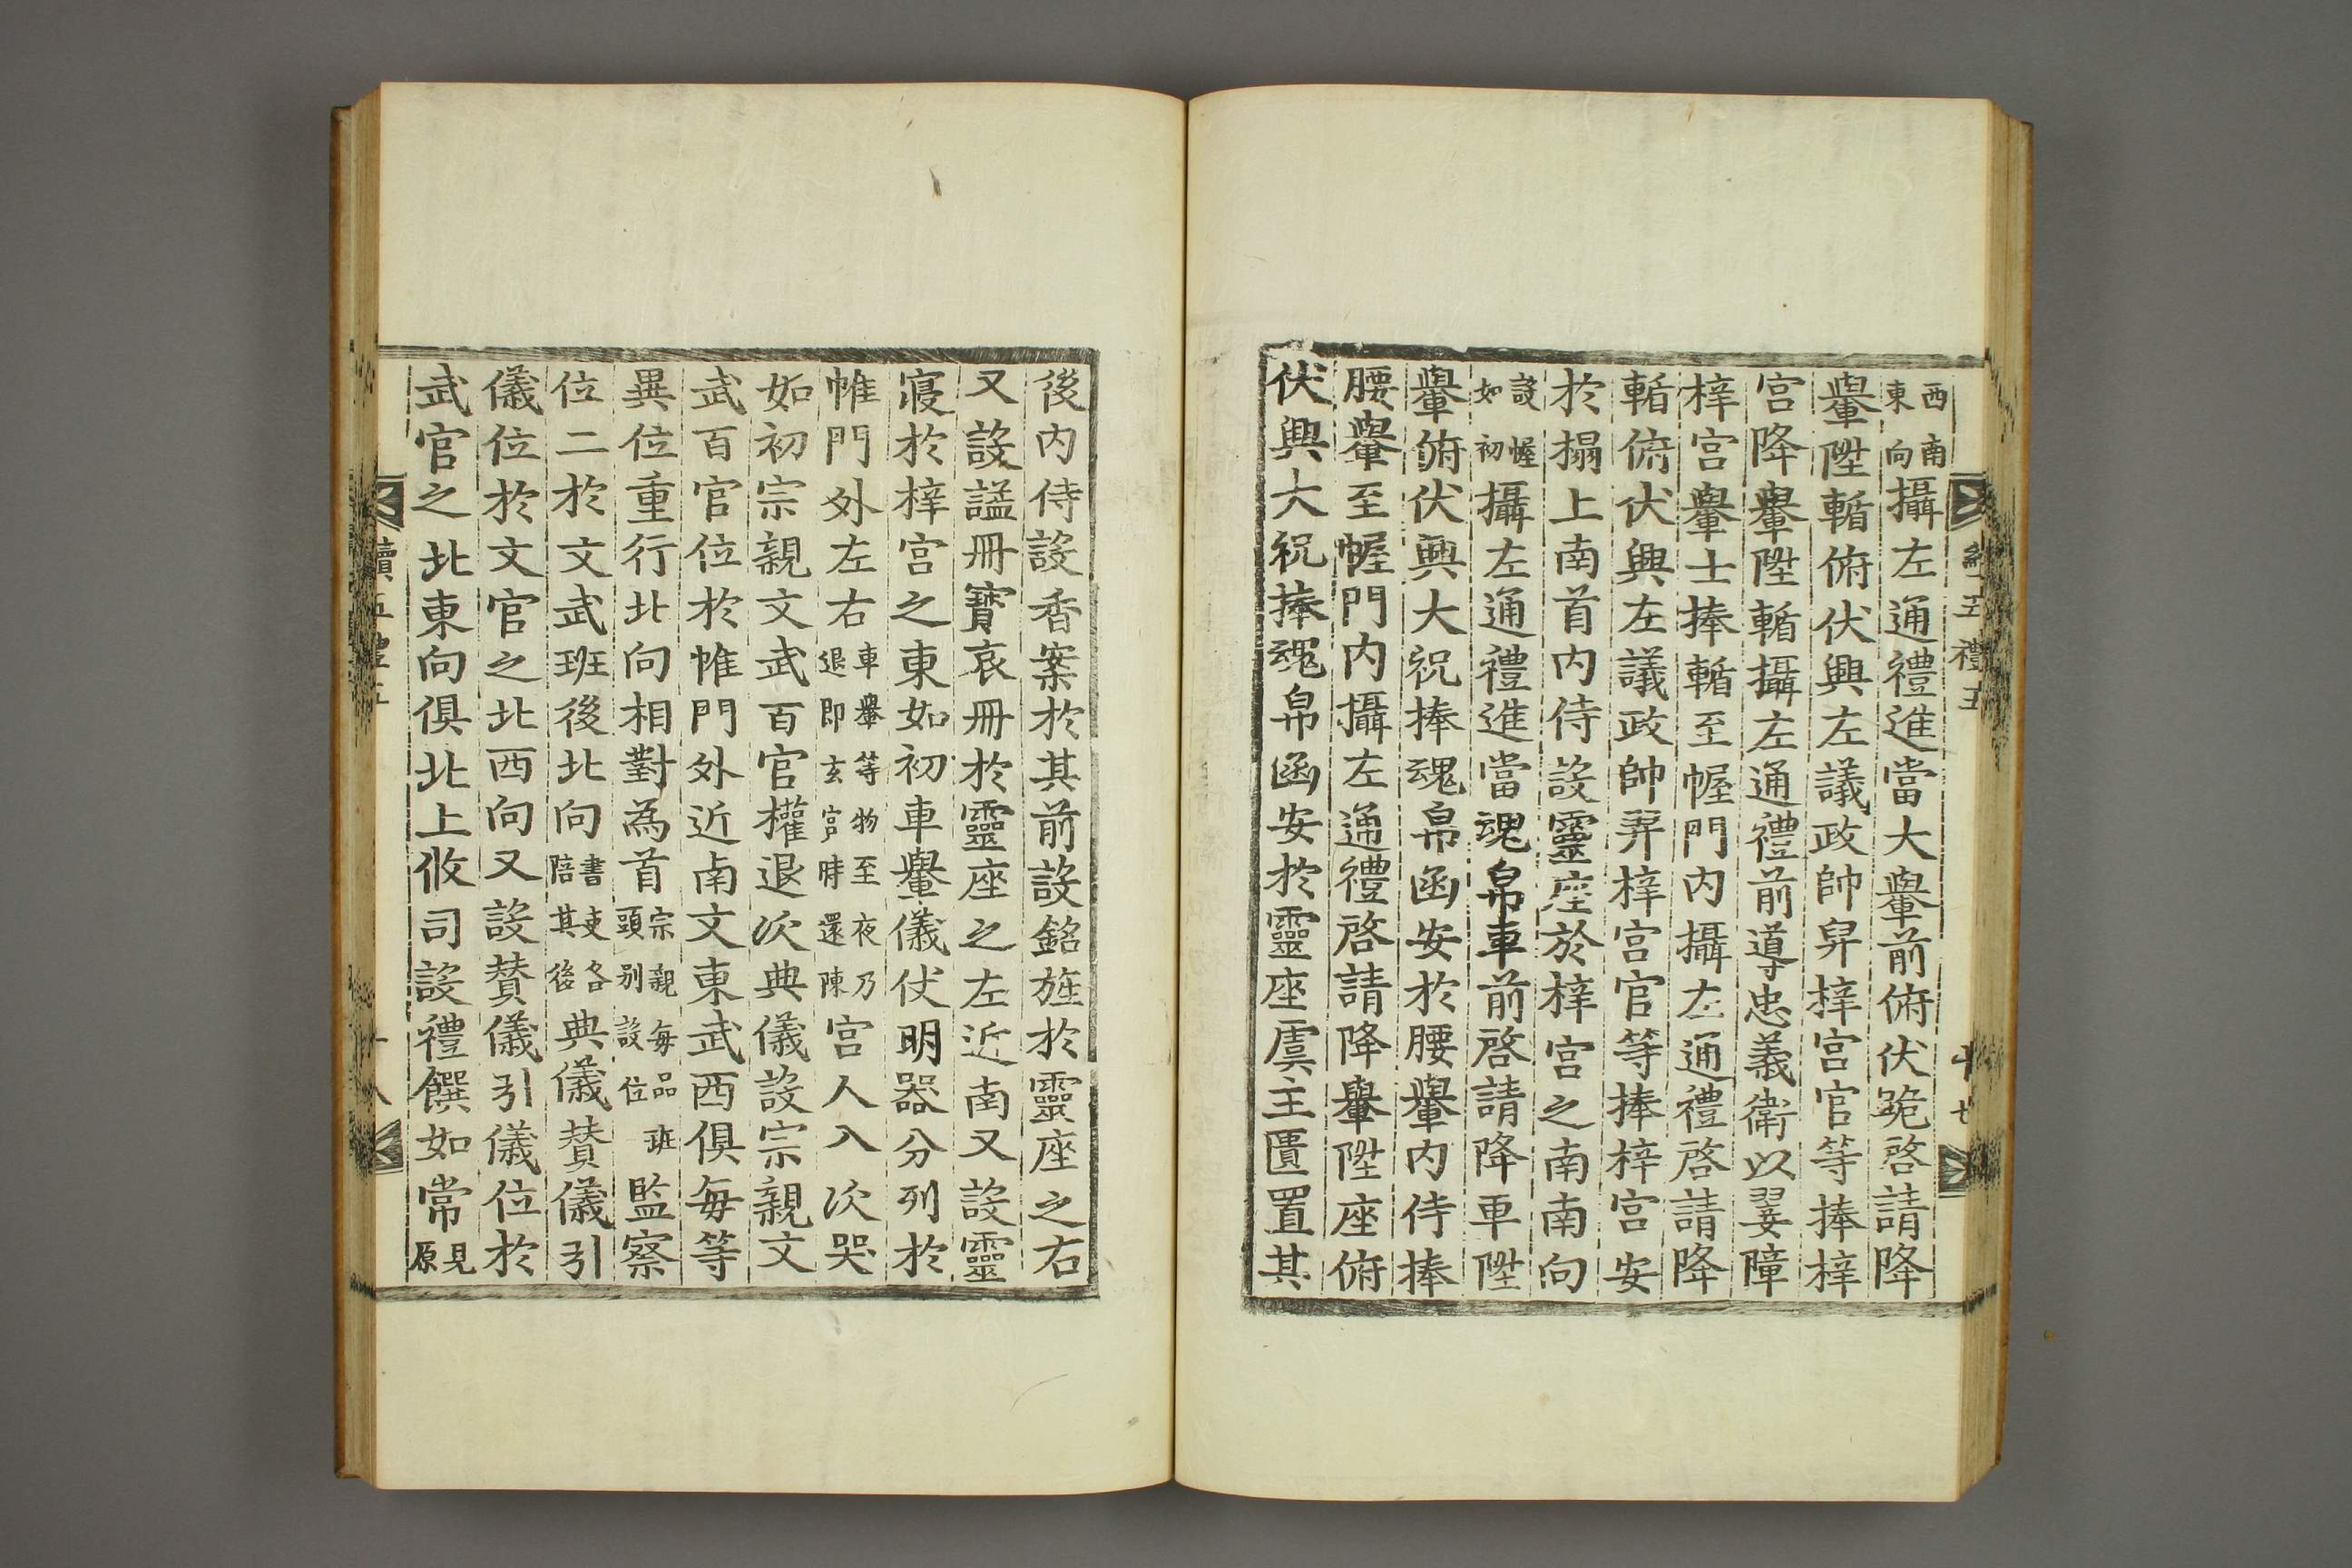 續五禮五
十七
西南東向攝左通禮進當大轝前俯伏跪啓請降
轝陞輴俯伏興左議政帥舁梓宮官等捧梓
宮降轝陞輴攝左通禮前導忠義衛以翣障
梓宮轝士捧輴至幄門內攝左通禮啓請降
輴俯伏興左議政帥舁梓宮官等捧梓宮安
於榻上南首內侍設靈座於梓宮之南南向
設幄如初攝左通禮進當魂帛車前啓請降車陞
轝俯伏興大祝捧魂帛函安於腰轝內侍捧
腰轝至幄門內攝左通禮啓請降轝陞座俯
伏興大祝捧魂帛函安於靈座虞主匱置其
後內侍設香案於其前設銘旌於靈座之右
又設諡冊寶哀冊於靈座之左近南又設靈
寢於梓宮之東如初車轝儀仗明器分列於
帷門外左右車轝等物至夜乃退卽玄宮時還陳宮人入次哭
如初宗親文武百官權退次典儀設宗親文
武百官位於帷門外近南文東武西俱每等
異位重行北向相對為首宗親每品班頭別設位監察
位二於文武班後北向書吏各陪其後典儀贊儀引
儀位於文官之北西向又設贊儀引儀位於
武官之北東向俱北上攸司設禮饌如常見原
續五禮五
十八